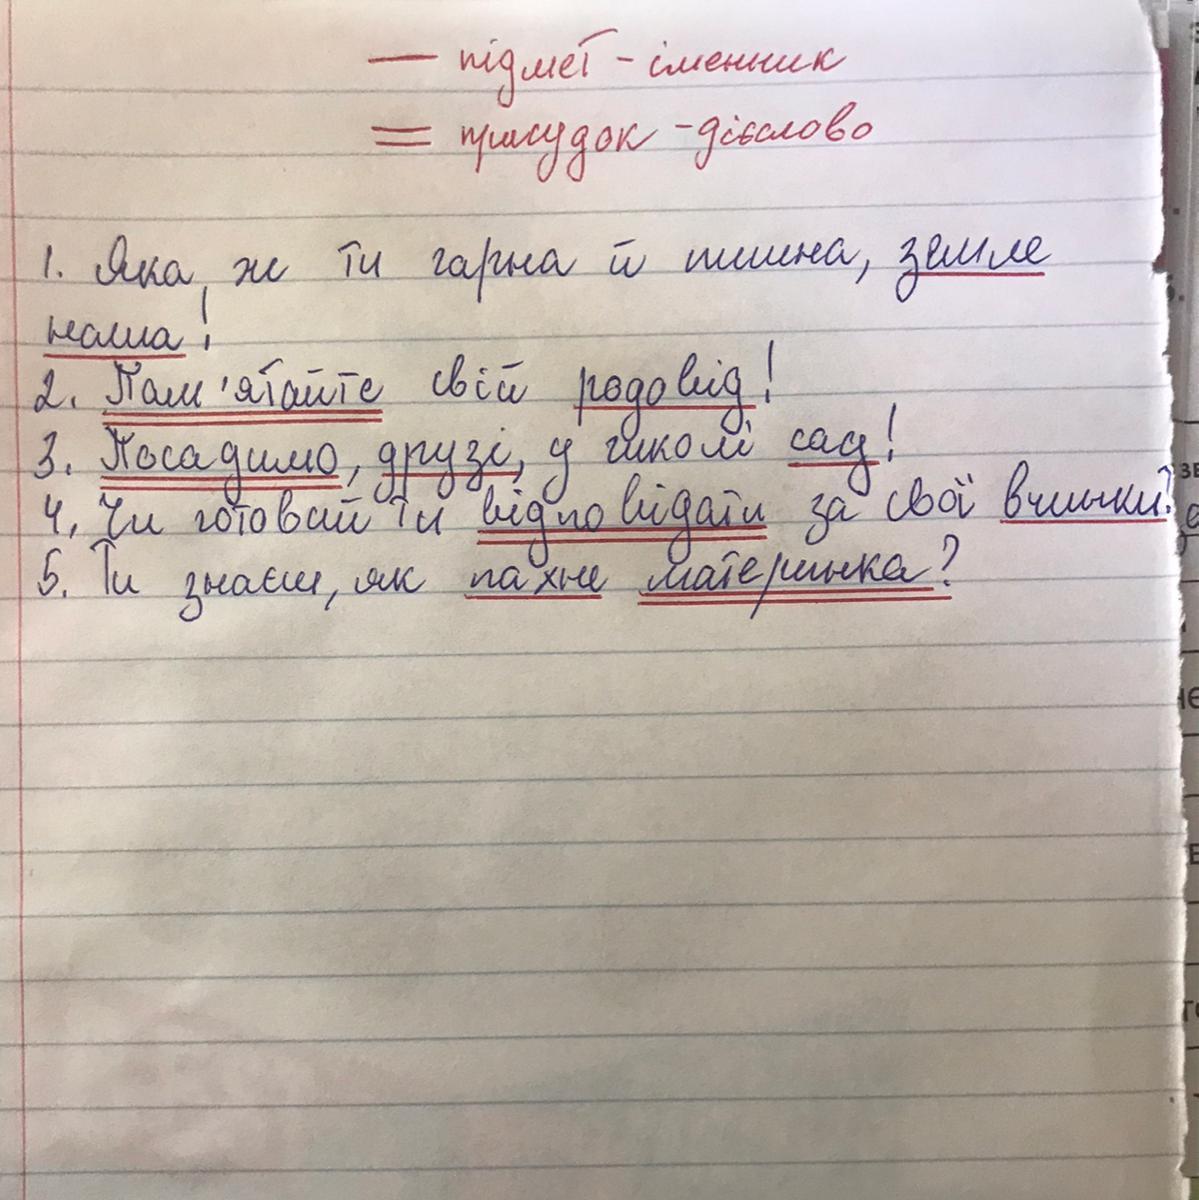 — підмет - іменник
= присудок - дієслово
1. Яка ж ти гарна й пишна, земле
наша!
2. Пам'ятайте свій родовід!
3. Посадимо, друзі, у школі сад!
4. Чи готовий ти відповідати за свої вчинки?
5. Ти знаєш, як пахне материнка?